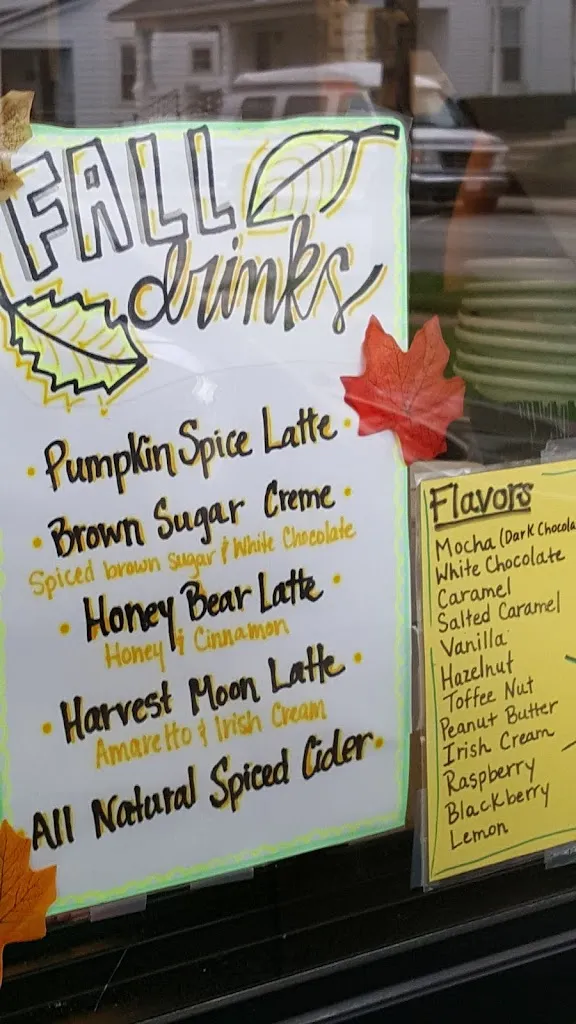 FALL
drinks
Pumpkin Spice Latte
Brown Sugar Creme
Spiced brown sugar & White Chocolate
Honey Bear Latte
Honey & Cinnamon
Harvest Moon Latte
Amaretto & Irish Cream
All Natural Spiced Cider
Flavors
Mocha (Dark Chocola
White Chocolate
Caramel
Salted Caramel
Vanilla
Hazelnut
Toffee Nut
Peanut Butter
Irish Cream
Raspberry
Blackberry
Lemon